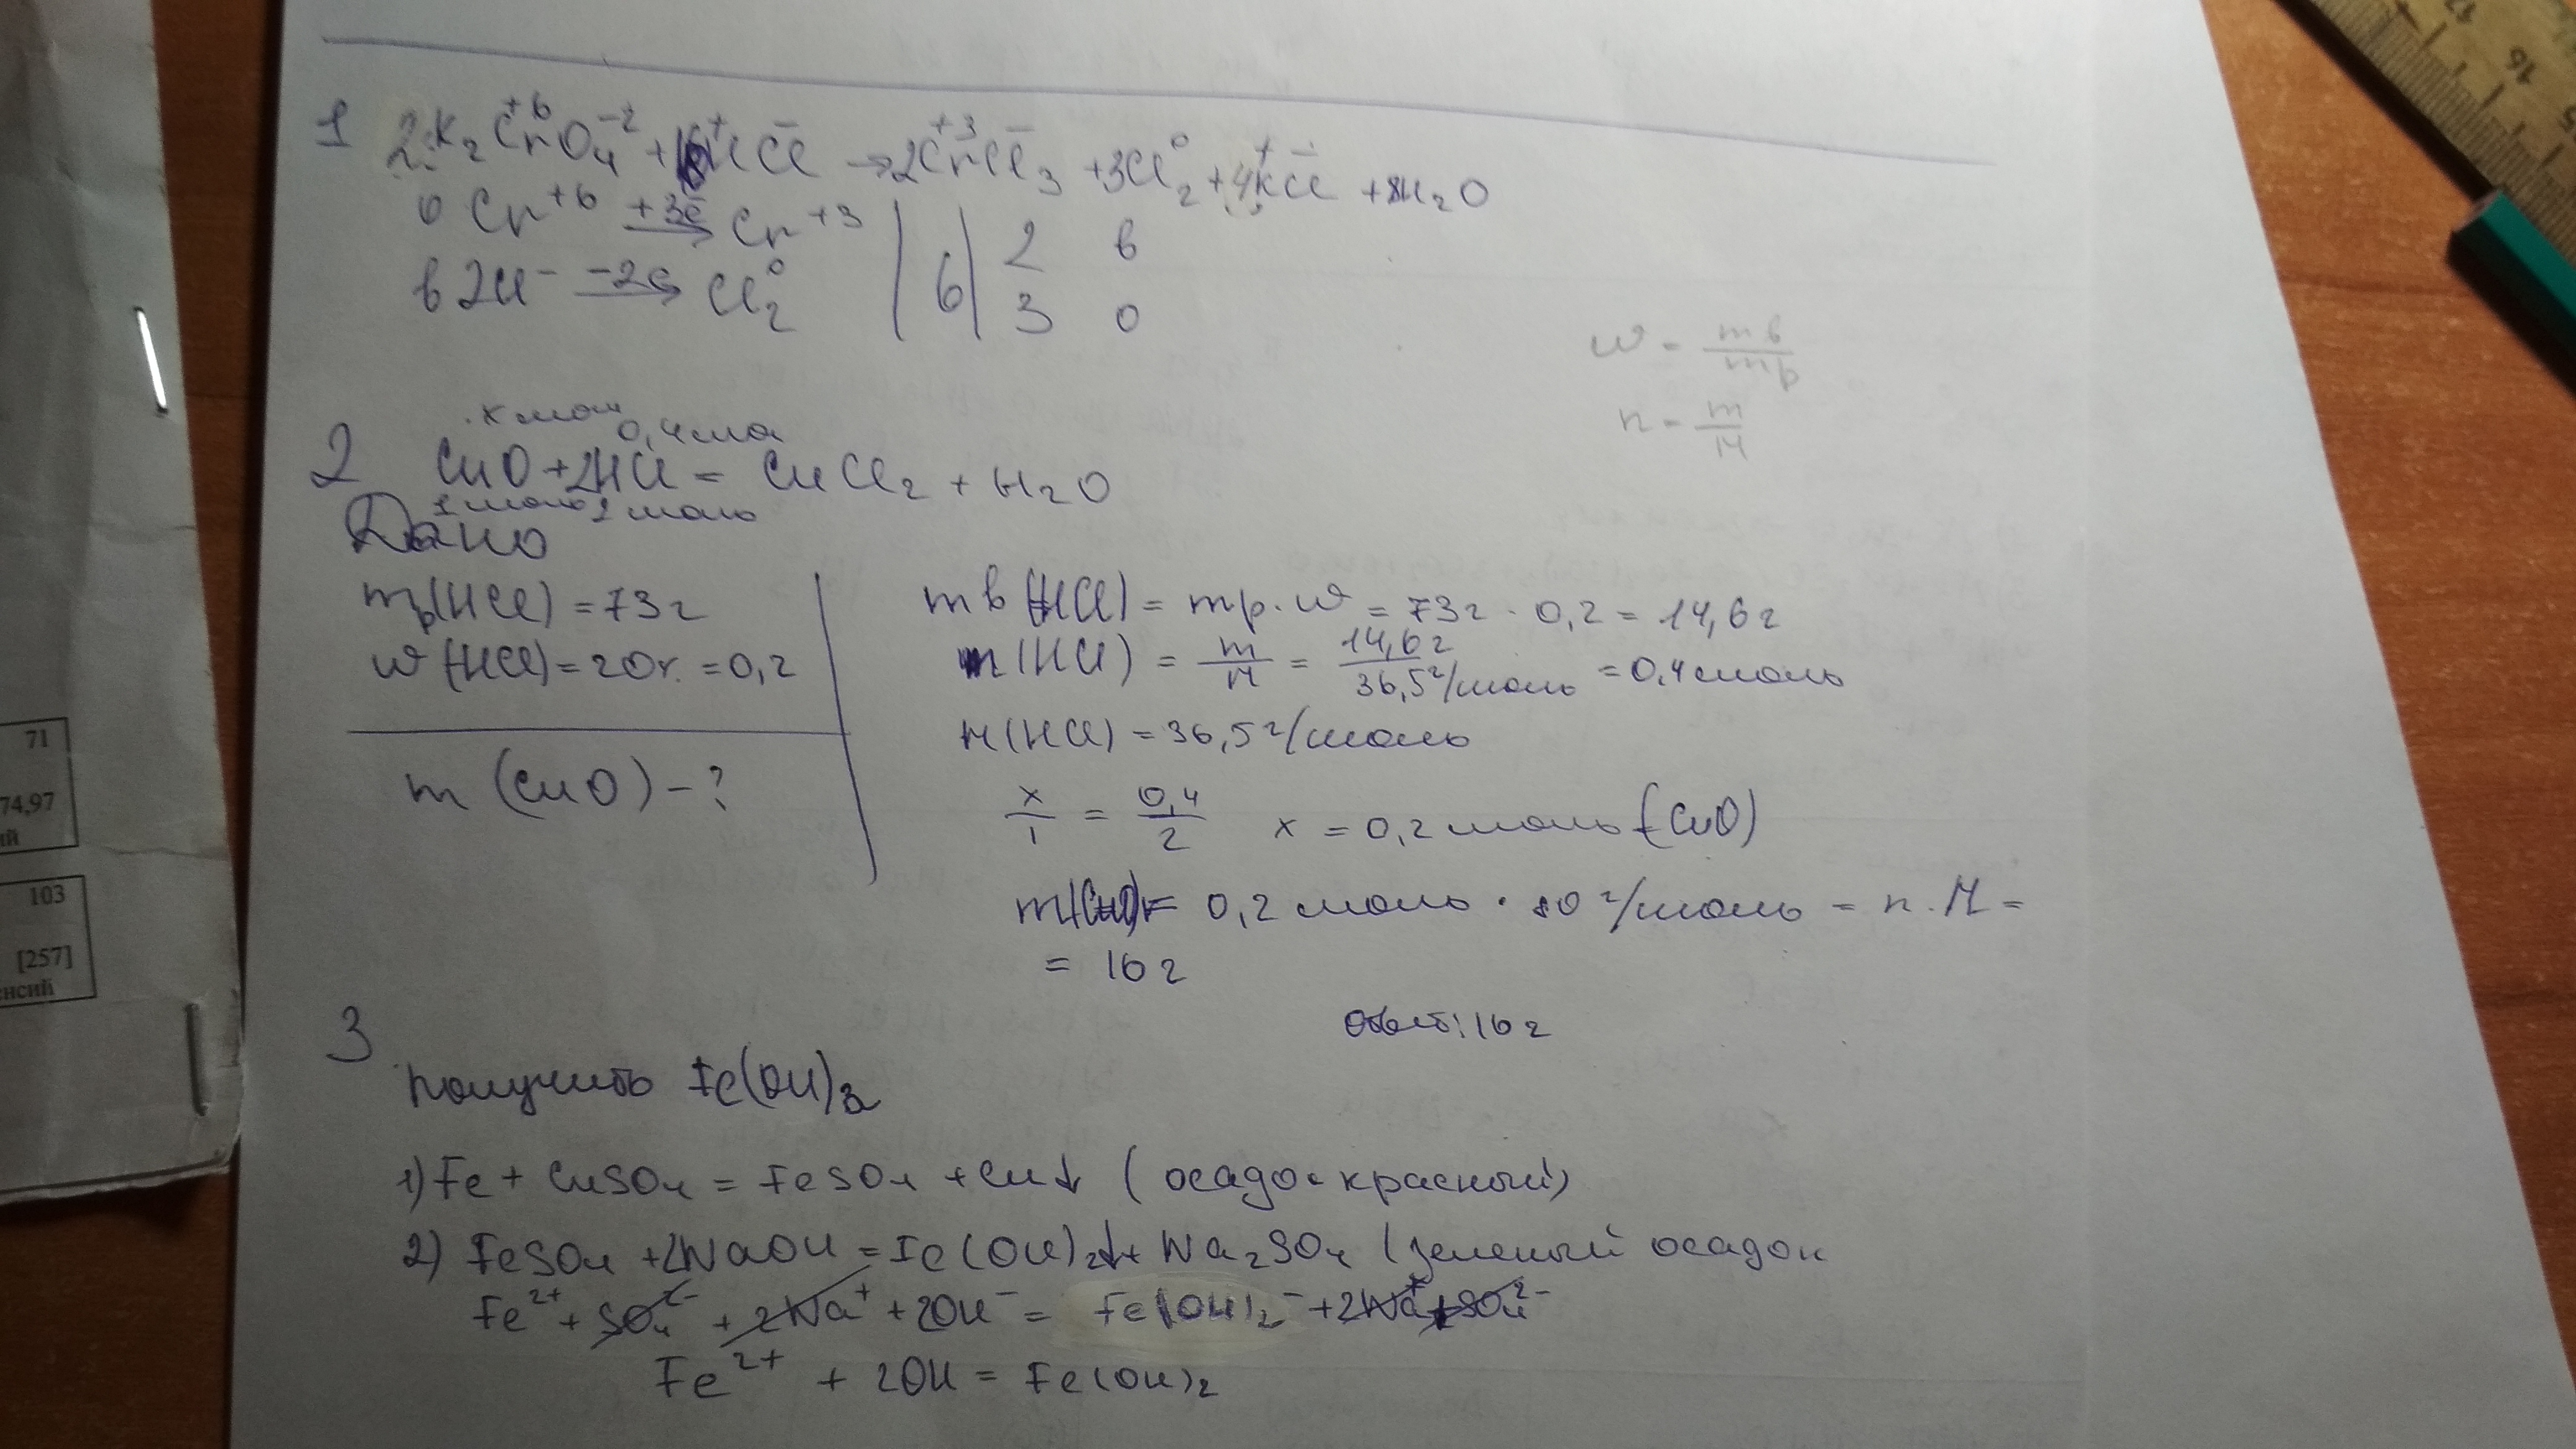 1 2K₂Cr⁺⁶O₄⁻² + 16H⁺Cl⁻ → 2Cr⁺³Cl⁻₃ + 3Cl⁰₂ + 4K⁺Cl⁻ + 8H₂O
0 Cr⁺⁶ +3e̅→ Cr⁺³ | | 2 в
6
в 2Cl⁻ -2e→ Cl₂⁰ | | 3 0
w = mв/mр
n = m/M
x моль 0,4 мол
2 CuO + 2HCl = CuCl₂ + H₂O
1 моль 2 моль
Дано
mр(HCl) = 73г
w(HCl) = 20%. = 0,2
m (CuO) - ?
mв (HCl) = mр · w = 73г · 0,2 = 14,6г
n (HCl) = m/M = 14,6г/36,5г/моль = 0,4 моль
M(HCl) = 36,5г/моль
x/1 = 0,4/2 x = 0,2 моль (CuO)
m(CuO) = 0,2 моль · 80 г/моль = n · M =
= 16г
Ответ: 16г
3
Получить Fe(OH)₂
1) Fe + CuSO₄ = FeSO₄ + Cu↓ (осадок красный)
2) FeSO₄ + 2NaOH = Fe(OH)₂↓ + Na₂SO₄ (зеленый осадок
Fe²⁺ + SO₄²⁻ + 2Na⁺ + 2OH⁻ = Fe(OH)₂⁻ + 2Na⁺ + SO₄²⁻
Fe²⁺ + 2OH = Fe(OH)₂
71
74,97
ий
103
[257]
нсий
17
16